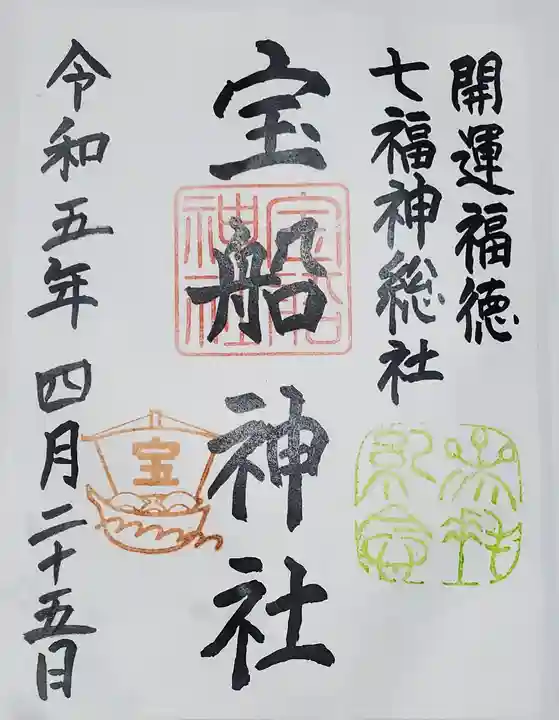 開運福徳
七福神総社
宝船神社
宝船
神社
宝
令和五年 四月二十五日